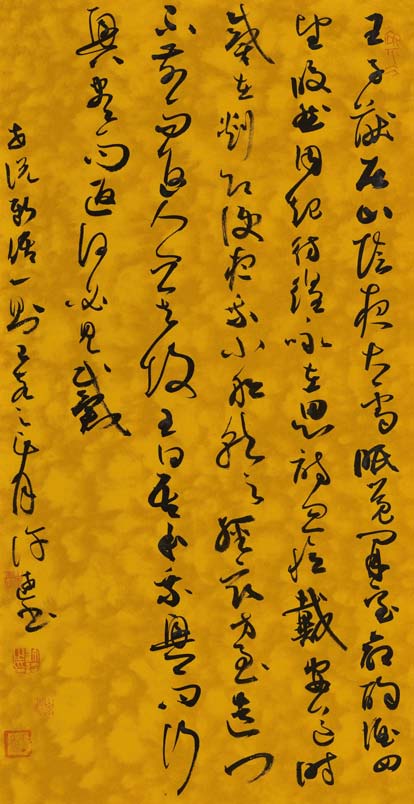 王子猷居山陰夜大雪眠覺開室命酌酒四
望皎然因起彷徨詠左思詩忽憶戴安道時
戴在剡即便夜乘小船就之經宿方至造門
不前而返人問其故王曰吾本乘興而行
興盡而返何必見戴
世说新語一則 之 月 许 书